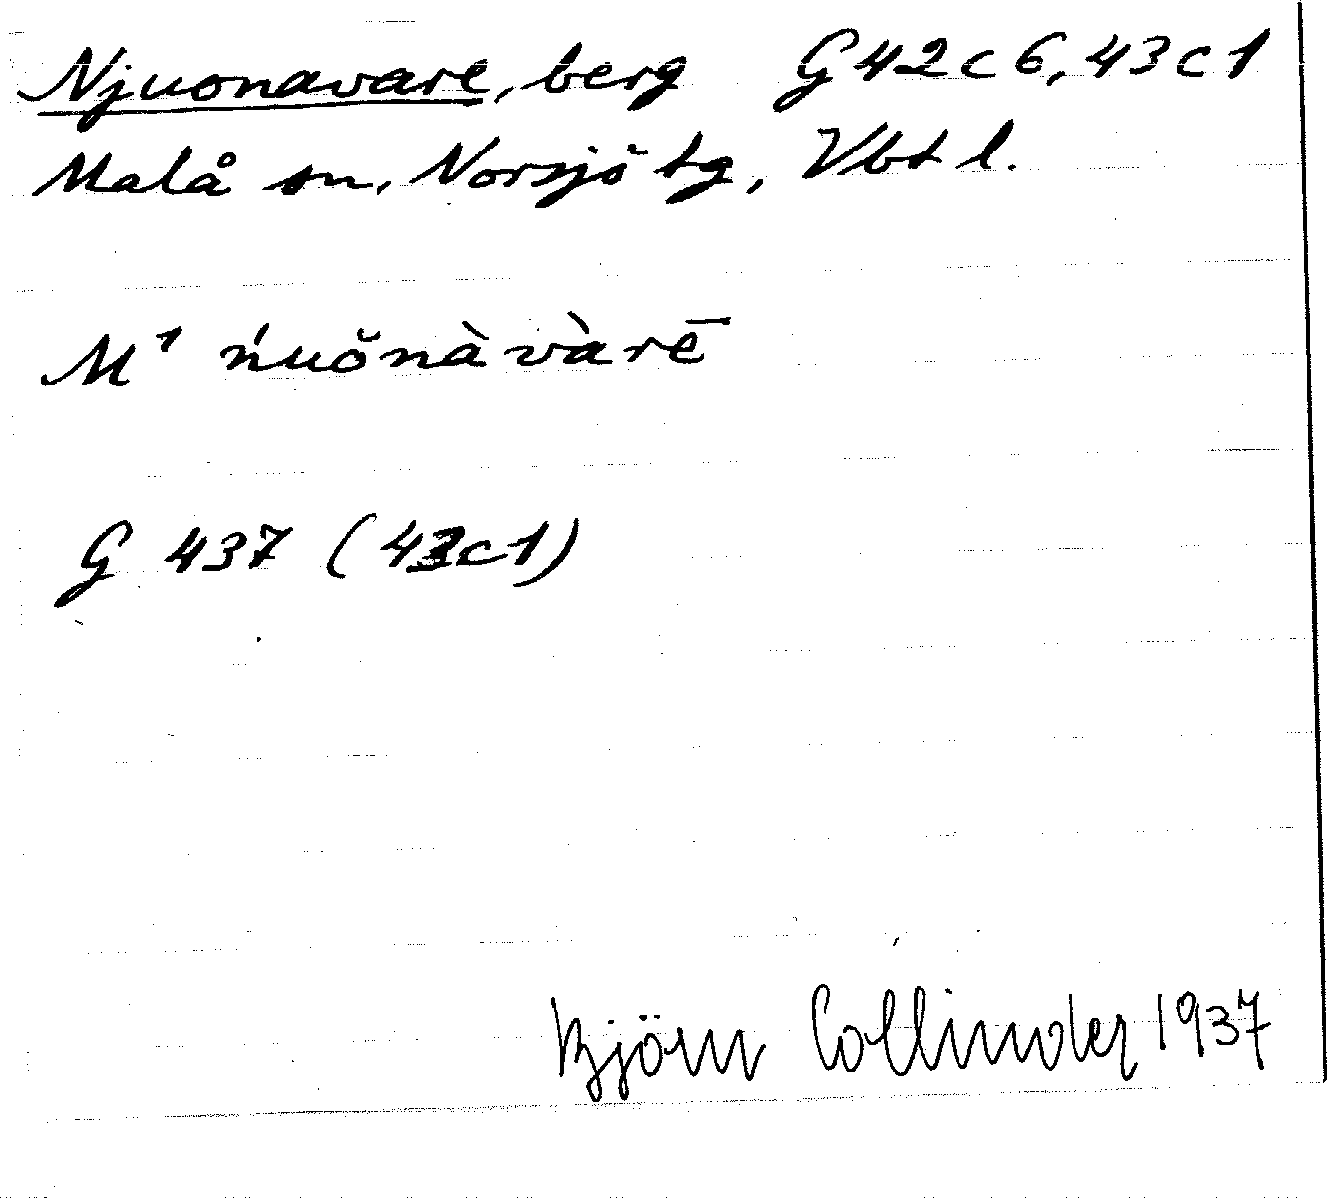 Njuonavare, berg G42c6, 43c1
Malå sn, Norsjö tg, Vbt l.
M¹ ńuŏnàvàrē
G 437 (43c1)
Björn Collinder 1937